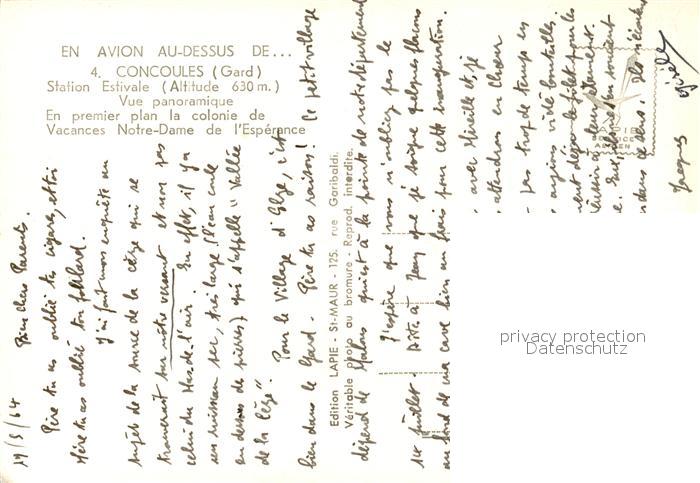 EN AVION AU-DESSUS DE...
4. CONCOULES (Gard)
Station Estivale (Altitude 630 m.)
Vue panoramique
En premier plan la colonie de
Vacances Notre-Dame de l'Espérance
Edition LAPIE - St-MAUR - 125, rue Garibaldi.
Véritable photo au bromure - Reprod. interdite.
19/5/64 Bien chers Parents.
Père tu as oublié tes cigares, et toi
Mère tu as oublié ton foulard.
J'ai fait mon enquête au
sujet de la source de la Cèze qui se
trouverait sur notre versant et non pas
celui du Mas de l'air. En effet, il y a
un ruisseau sec, très large (l'eau coule
en dessous de pierres) qui s'appelle "Vallée
de la Cèze".
Pour le Village d'
bien dans le Gard. Père tu as raison! Ce petit village
dépend de Malons qui est à la pointe de notre département
J'espère que vous n'oubliez pas le
1er juillet. Dites à Jeany que je soigne quelques flacons
au fond de ma cave bien au frais pour cette inauguration.
avec Mireille et, je
attendrons en chœur
pas trop de temps en
vidé bouteilles.
Jacques Gisèle
privacy protection
Datenschutz